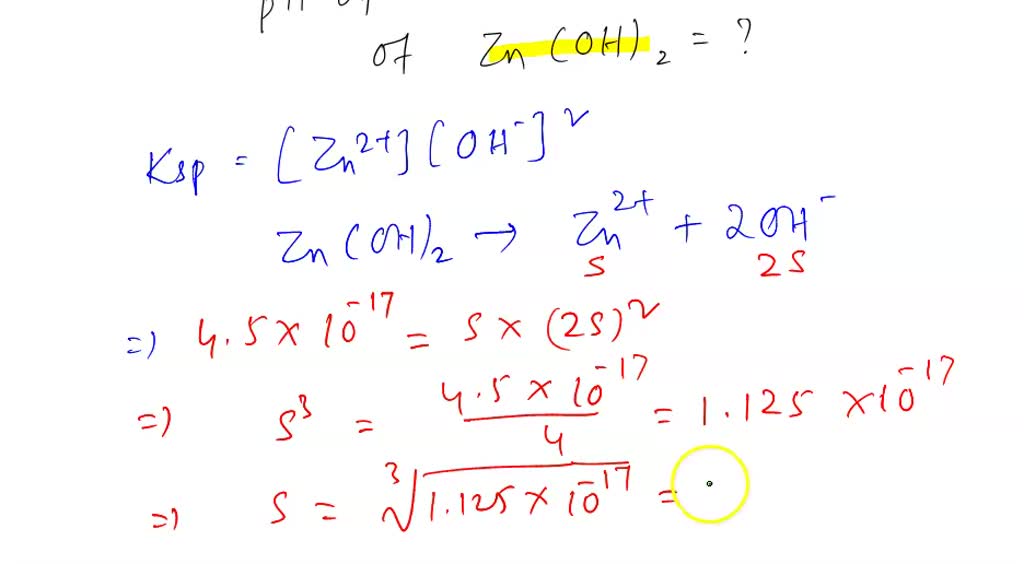 pH of
of Zn(OH)₂ = ?
Ksp = [Zn²⁺][OH⁻]²
Zn(OH)₂ → Zn²⁺ + 2OH⁻
S 2S
=) 4.5 × 10⁻¹⁷ = S × (2S)²
=) S³ = 4.5 × 10⁻¹⁷ / 4 = 1.125 × 10⁻¹⁷
=) S = ∛1.125 × 10⁻¹⁷ =